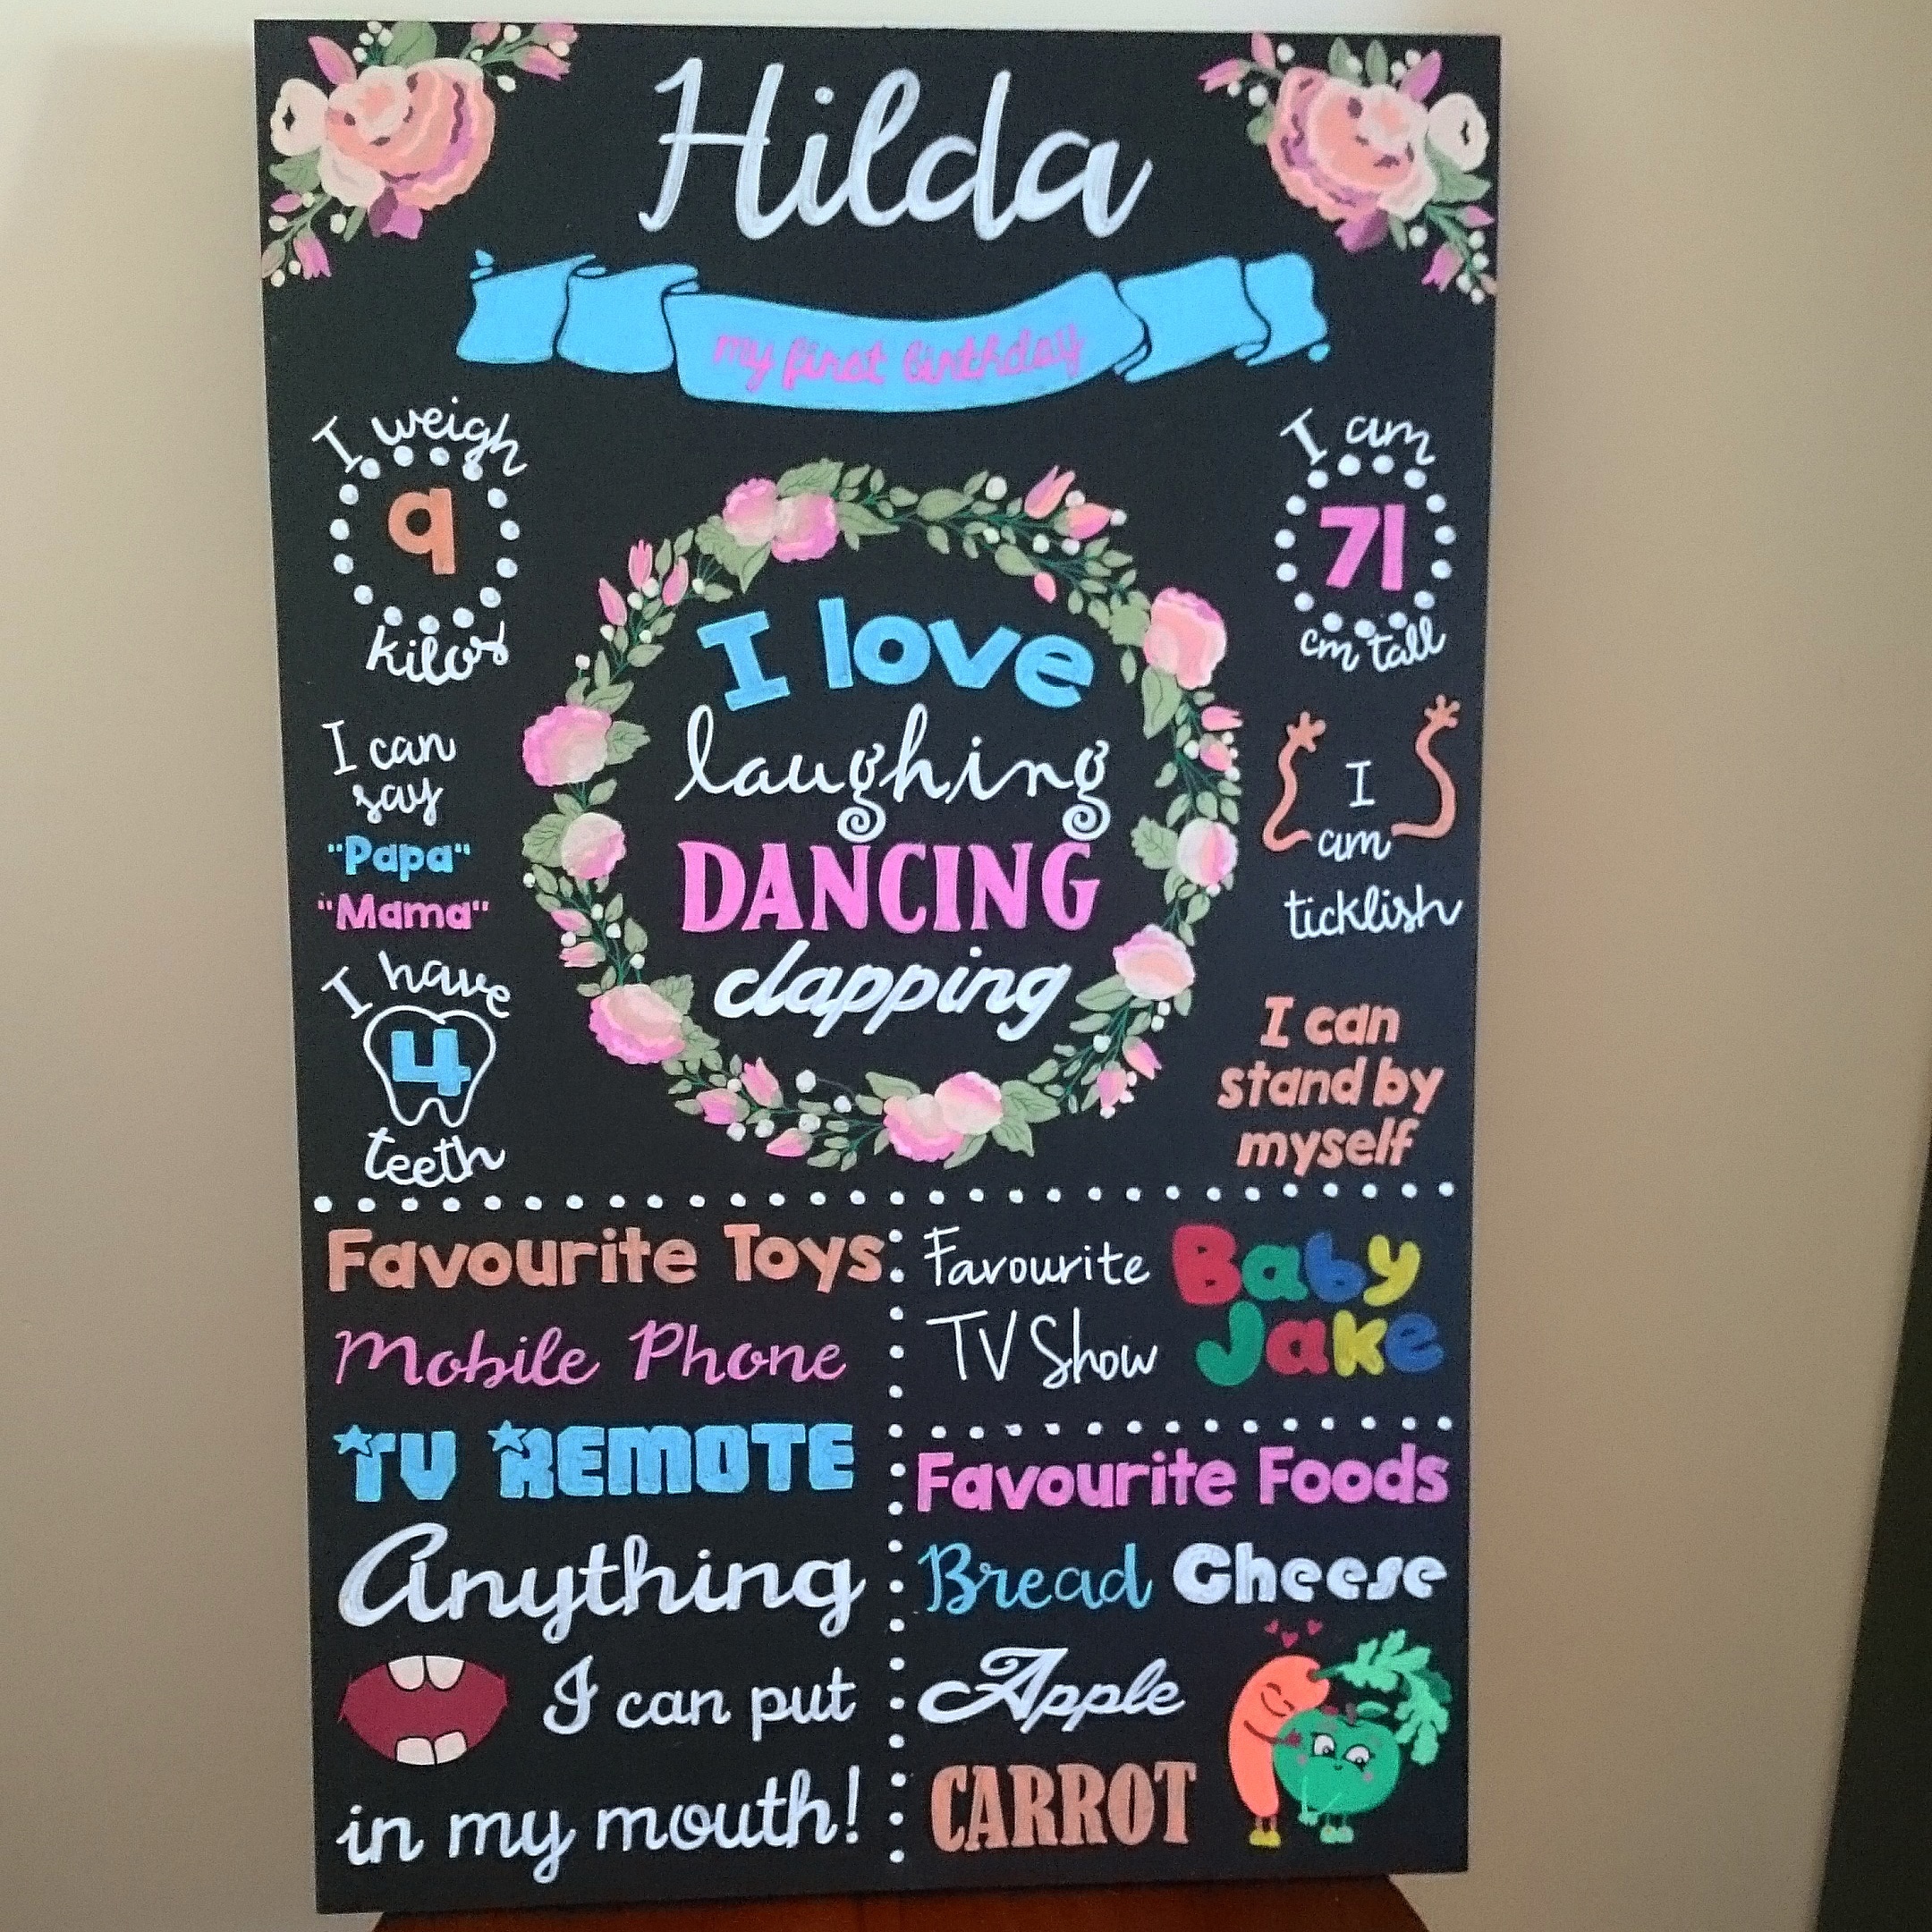 Hilda
my first birthday
I weigh
9
kilos
I am
71
cm tall
I love
laughing
DANCING
clapping
I can
say
"Papa"
"Mama"
I
am
ticklish
I have
4
teeth
I can
stand by
myself
Favourite Toys
Mobile Phone
TV REMOTE
Anything
I can put
in my mouth!
Favourite
TV Show
Baby
Jake
Favourite Foods
Bread Cheese
Apple
CARROT